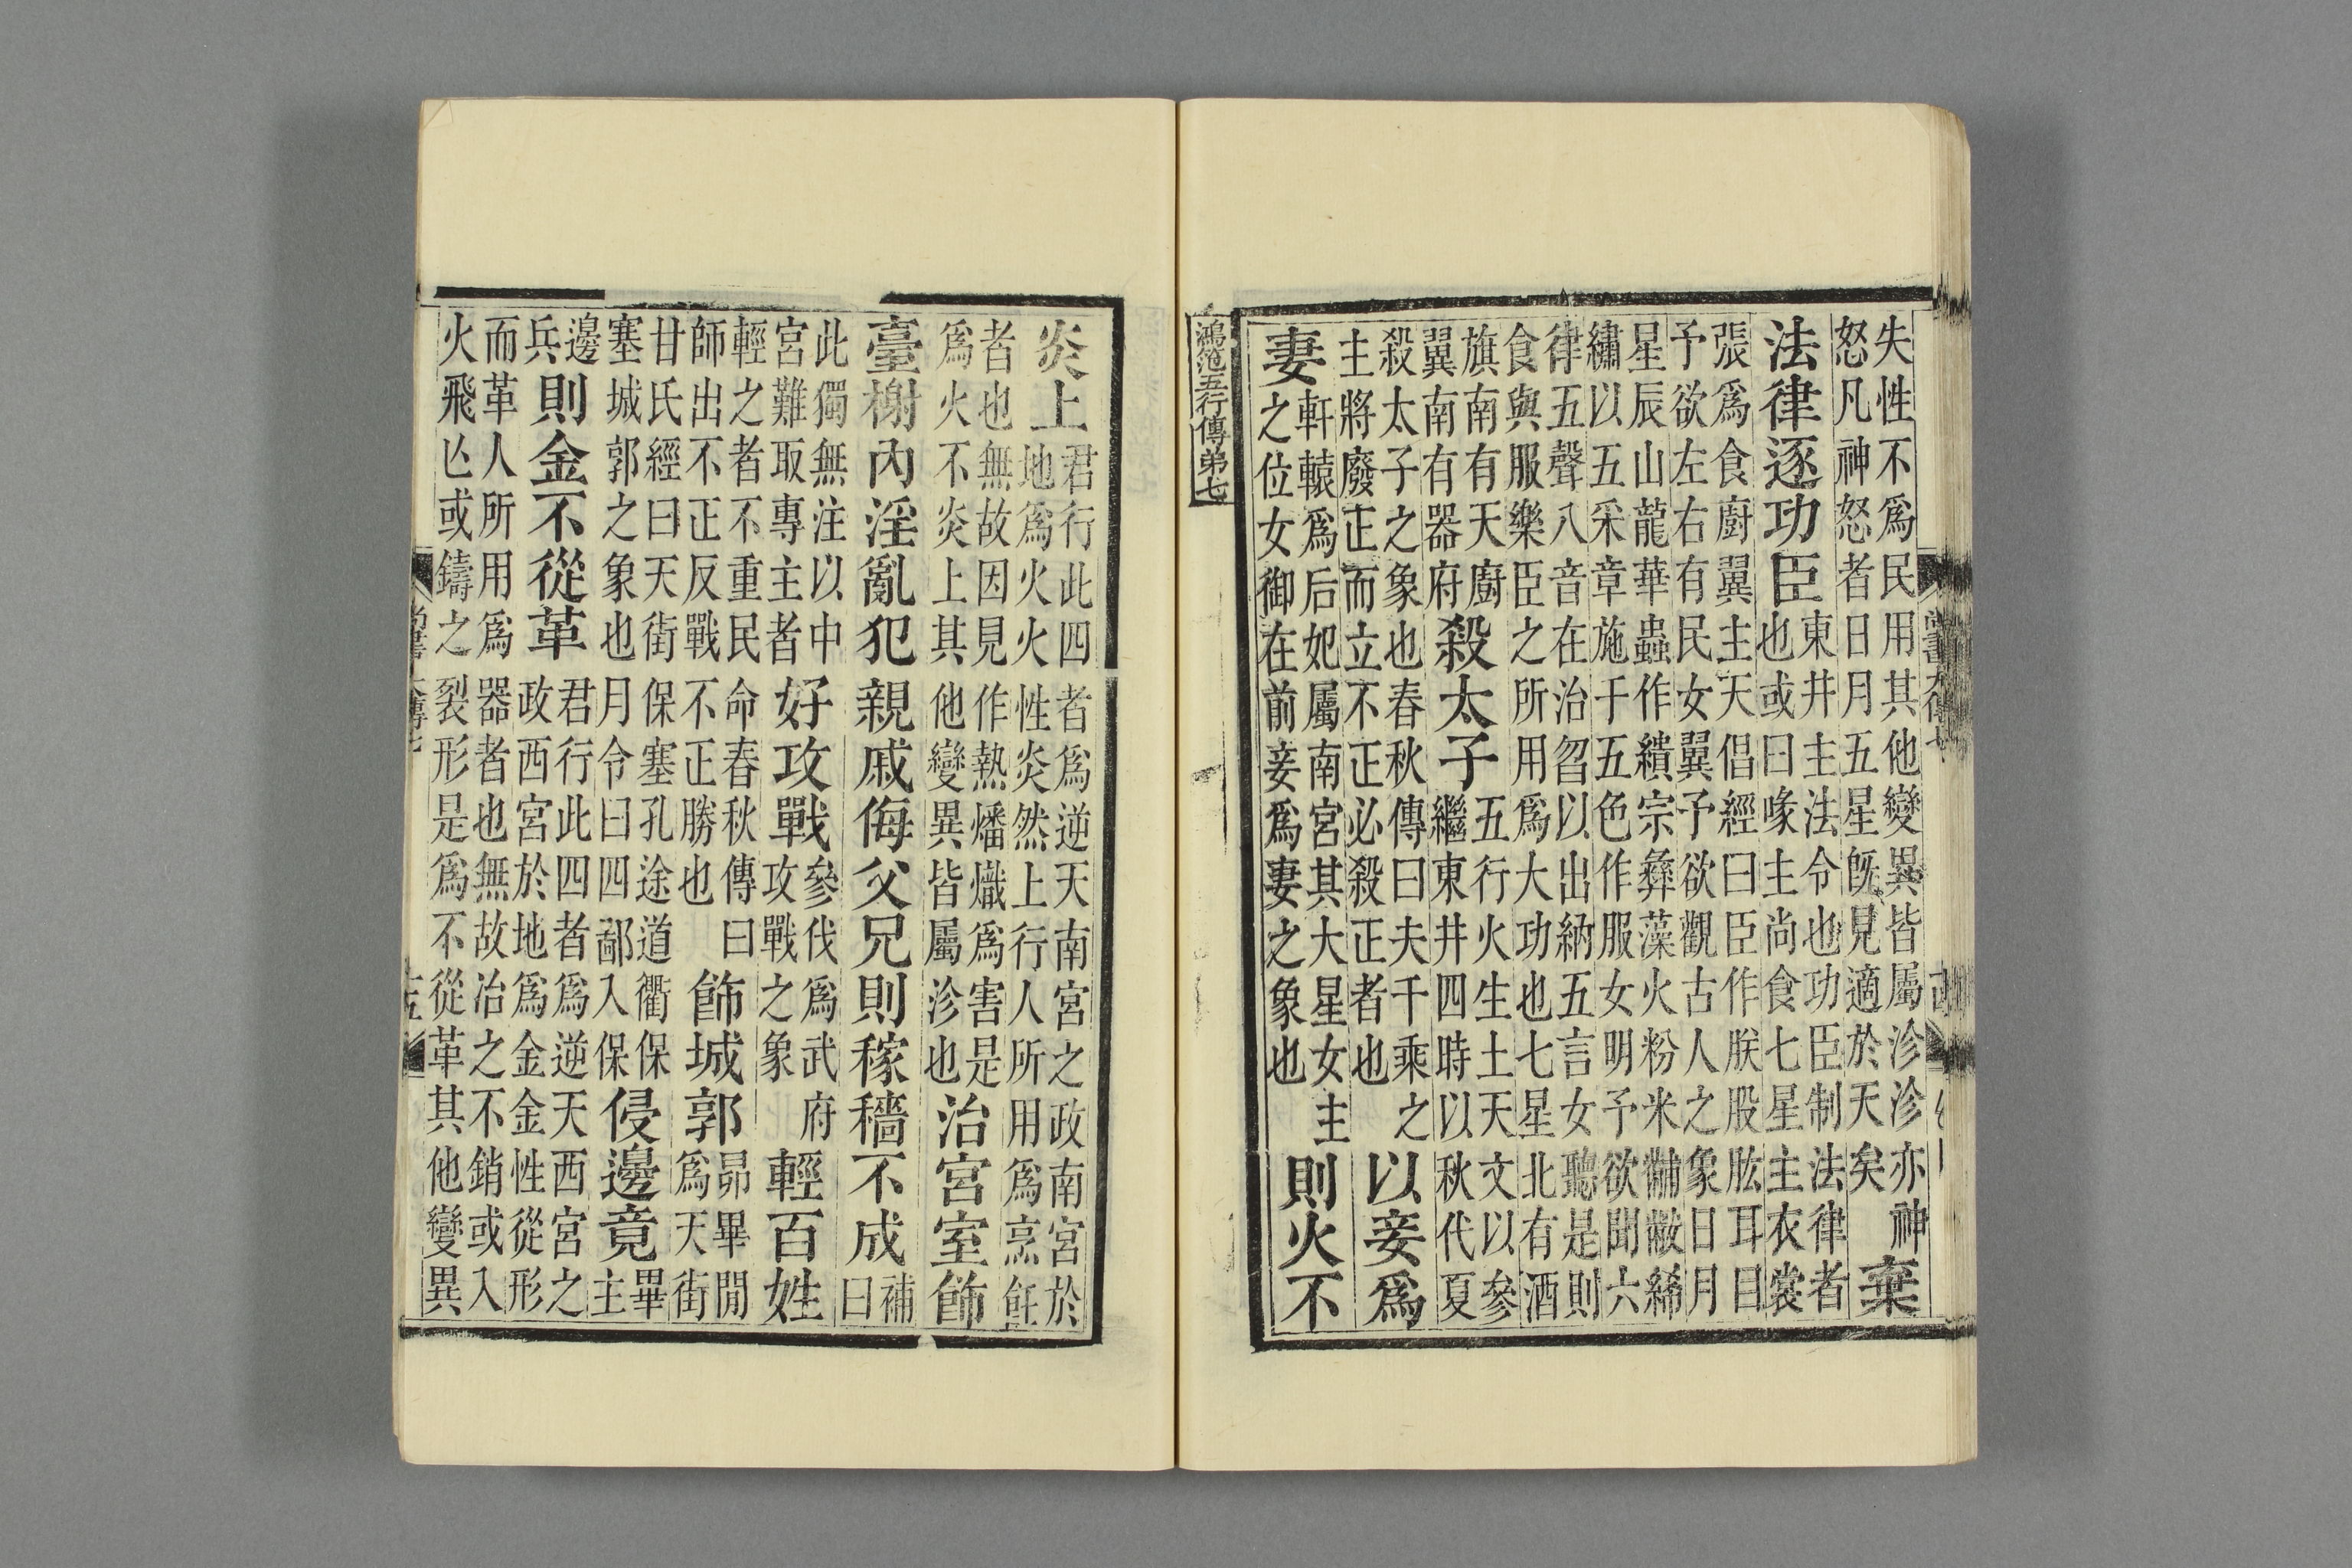 失性不爲民用其他變異皆屬沴沴亦神
怒凡神怒者日月五星旣見適於天矣
棄
法律逐功臣
東井主法令也功臣制法律者
也或曰喙主尚食七星主衣裳
張爲食廚翼主天倡經曰臣作朕股肱耳目
予欲左右有民女翼予欲觀古人之象日月
星辰山龍華蟲作繢宗彝藻火粉米黼黻絺
繡以五采章施于五色作服女明予欲聞六
律五聲八音在治曶以出納五言女聽是則
食與服樂臣之所用爲大功也七星北有酒
旗南有天廚
翼南有器府
殺太子
五行火生土天文以參
繼東井四時以秋代夏
殺太子之象也春秋傳曰夫千乘之
主將廢正而立不正必殺正者也
以妾爲
妻
軒轅爲后妃屬南宮其大星女主
之位女御在前妾爲妻之象也
則火不
鴻笵五行傳弟七
炎上
君行此四者爲逆天南宮之政南宮於
地爲火火性炎然上行人所用爲烹飪
者也無故因見作熱燔熾爲害是
爲火不炎上其他變異皆屬沴也
治宮室飾
臺榭內淫亂犯親戚侮父兄則稼穡不成
補
曰
此獨無注以中
宮難取專主者
好攻戰
參伐爲武府
攻戰之象
輕百姓
輕之者不重民命春秋傳曰
師出不正反戰不正勝也
飾城郭
昴畢閒
爲天街
甘氏經曰天街保塞孔途道衢保
塞城郭之象也月令曰四鄙入保
侵邊竟
畢
主
邊
兵
則金不從革
君行此四者爲逆天西宮之
政西宮於地爲金金性從形
而革人所用爲器者也無故冶之不銷或入
火飛亾或鑄之裂形是爲不從革其他變異